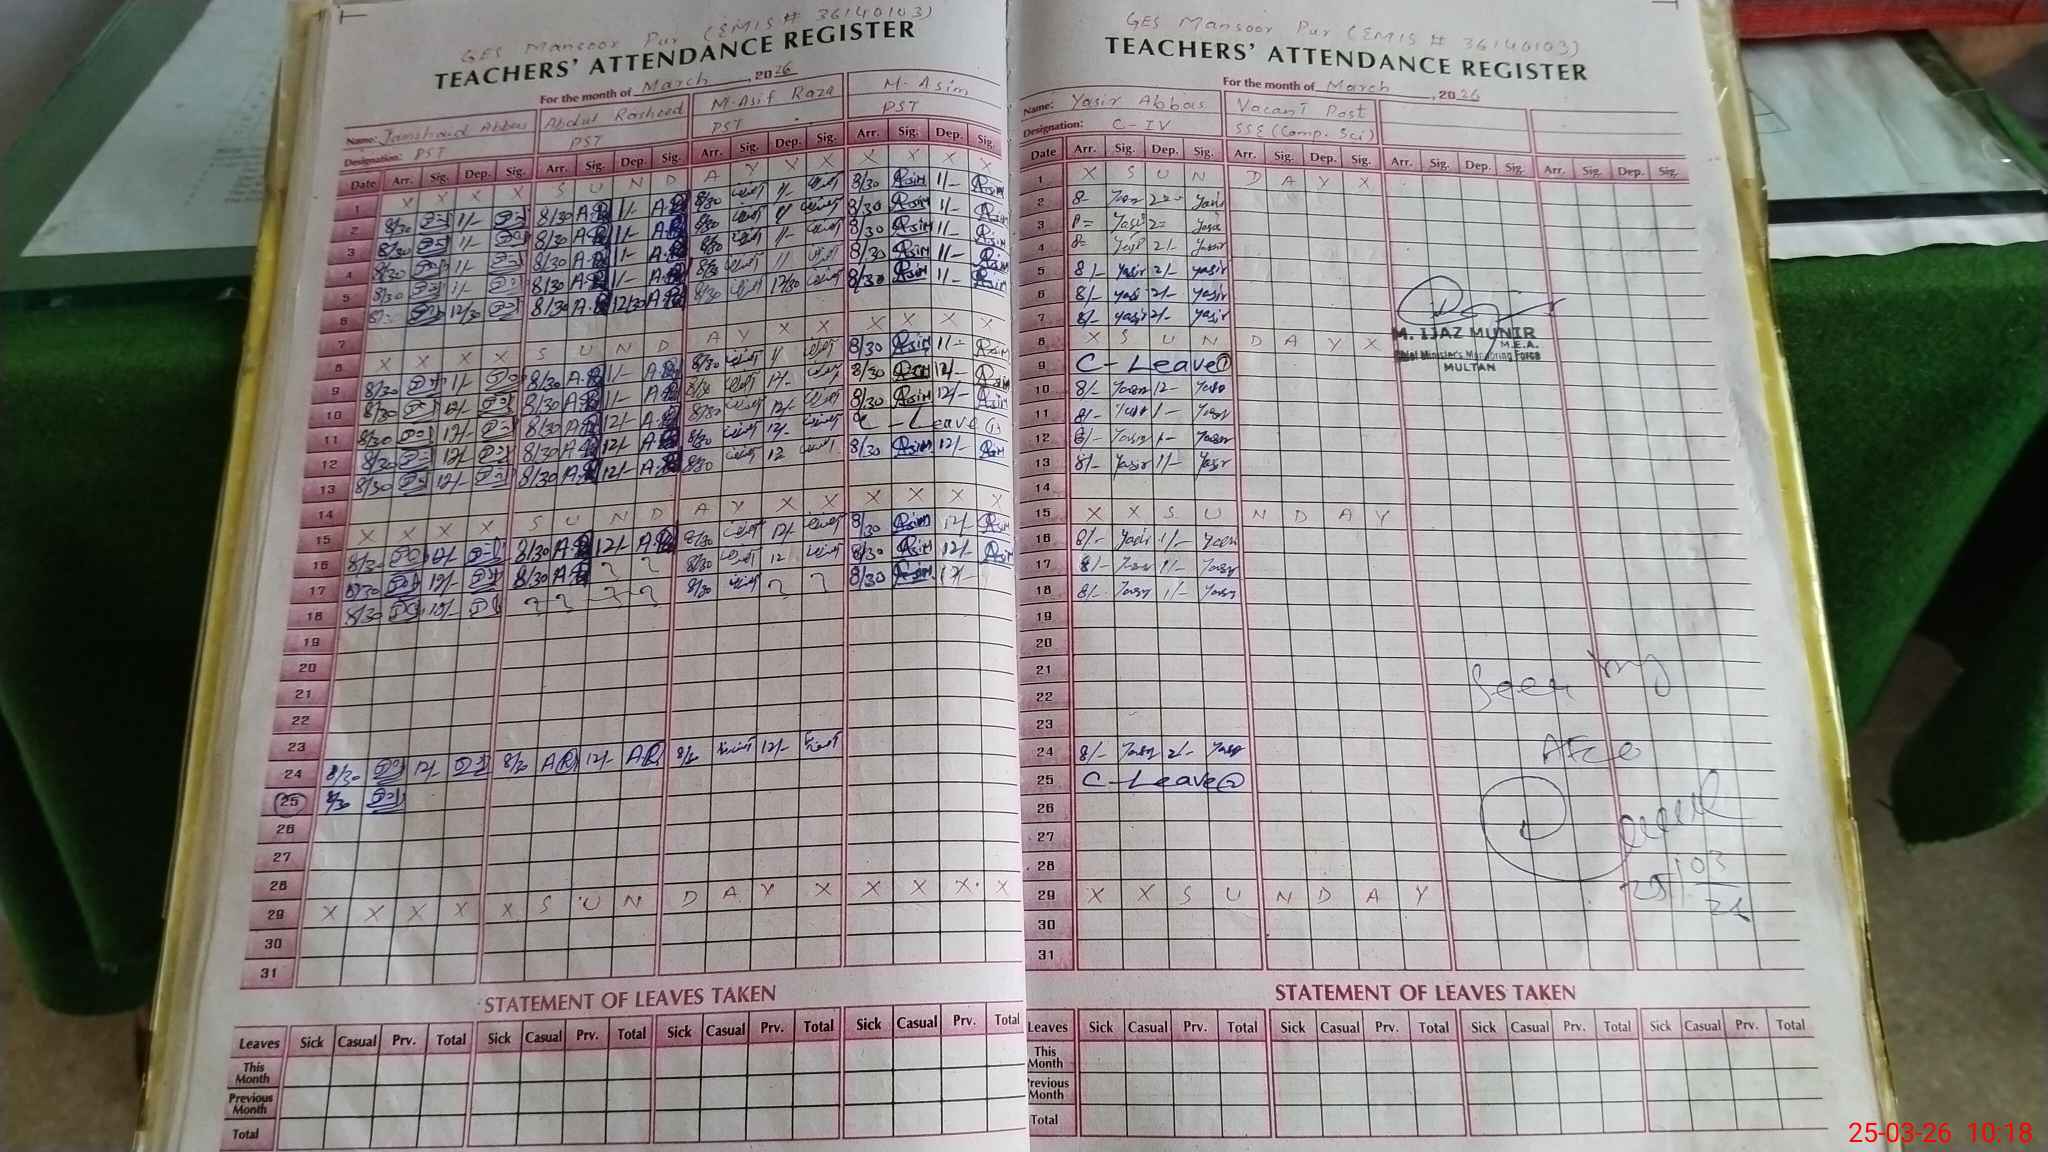 GES Mansoor Pur (EMIS # 36140103)
TEACHERS' ATTENDANCE REGISTER
For the month of March, 2026
Name: Jamshaid Abbas Abdul Rasheed M-Asif Raza M-Asim
Designation: PST PST PST PST
Date Arr. Sig. Dep. Sig. Arr. Sig. Dep. Sig. Arr. Sig. Dep. Sig. Arr. Sig. Dep. Sig.
1 X X X X S U N D A Y X X X X X X
2 8/30 11/- 8/30 A.R 11/- A.R 8/30 11/- 8/30 Asim 11/- Asim
3 8/30 11/- 8/30 A.R 11/- A.R 8/30 11 8/30 Asim 11/- Asim
4 8/30 11/- 8/30 A.R 11/- A.R 8/30 11/- 8/30 Asim 11/- Asim
5 8/30 11/- 8/30 A.R 11/- A.R 8/30 11 8/30 Asim 11/- Asim
6 12/30 8/30 A.R 12/30 A.R 8/30 12/30 8/30 Asim 11/- Asim
7
8 X X X X S U N D A Y X X X X X X
9 8/30 11/- 8/30 A.R 11/- A.R 8/30 11 8/30 Asim 11/- Asim
10 8/30 12/- 8/30 A.R 11/- A.R 8/30 12/- 8/30 Asim 12/- Asim
11 8/30 12/- 8/30 A.R 12/- A.R 8/30 12/- 8/30 Asim 12/- Asim
12 8/30 12/- 8/30 A.R 12/- A.R 8/30 12/- C-Leave (1)
13 8/30 12/- 8/30 A.R 12/- A.R 8/30 12 8/30 Asim 12/- Asim
14
15 X X X X S U N D A Y X X X X X X
16 8/30 12/- 8/30 A.R 12/- A.R 8/30 12/- 8/30 Asim 12/- Asim
17 8/30 12/- 8/30 A.R 8/30 12 8/30 Asim 12/- Asim
18 8/30 12/- 8/30 8/30 Asim 12/-
19
20
21
22
23
24 8/30 12/- 8/30 A.R 12/- A.R 12/-
25 8/30
26
27
28
29 X X X X X S U N D A Y X X X X X
30
31
STATEMENT OF LEAVES TAKEN
Leaves Sick Casual Prv. Total Sick Casual Prv. Total Sick Casual Prv. Total Sick Casual Prv. Total
This Month
Previous Month
Total
GES Mansoor Pur (EMIS # 36140103)
TEACHERS' ATTENDANCE REGISTER
For the month of March, 2026
Name: Yasir Abbas Vacant Post
Designation: C-IV SSE (Comp. Sci)
Date Arr. Sig. Dep. Sig. Arr. Sig. Dep. Sig. Arr. Sig. Dep. Sig. Arr. Sig. Dep. Sig.
1 X S U N D A Y X
2 8- Yasir 2= Yasir
3 8= Yasir 2= Yasir
4 8= Yasir 2/- Yasir
5 8/- Yasir 2/- Yasir
6 8/- Yasir 2/- Yasir
7 8/- Yasir 2/- Yasir
8 X S U N D A Y X
M. IJAZ MUNIR
M.E.A.
Chief Minister's Monitoring Force
MULTAN
9 C-Leave (1)
10 8/- Yasir 12- Yasir
11 8/- Yasir 1- Yasir
12 8/- Yasir 1- Yasir
13 8/- Yasir 1/- Yasir
14
15 X X S U N D A Y
16 8/- Yasir 1/- Yasir
17 8/- Yasir 1/- Yasir
18 8/- Yasir 1/- Yasir
19
20
21
22
23
Seen by
24 8/- Yasir 2/- Yasir
AEO
25 C-Leave (2)
26
27
28
25/03/26
29 X X S U N D A Y
30
31
STATEMENT OF LEAVES TAKEN
Leaves Sick Casual Prv. Total Sick Casual Prv. Total Sick Casual Prv. Total Sick Casual Prv. Total
This Month
Previous Month
Total
25-03-26 10:18